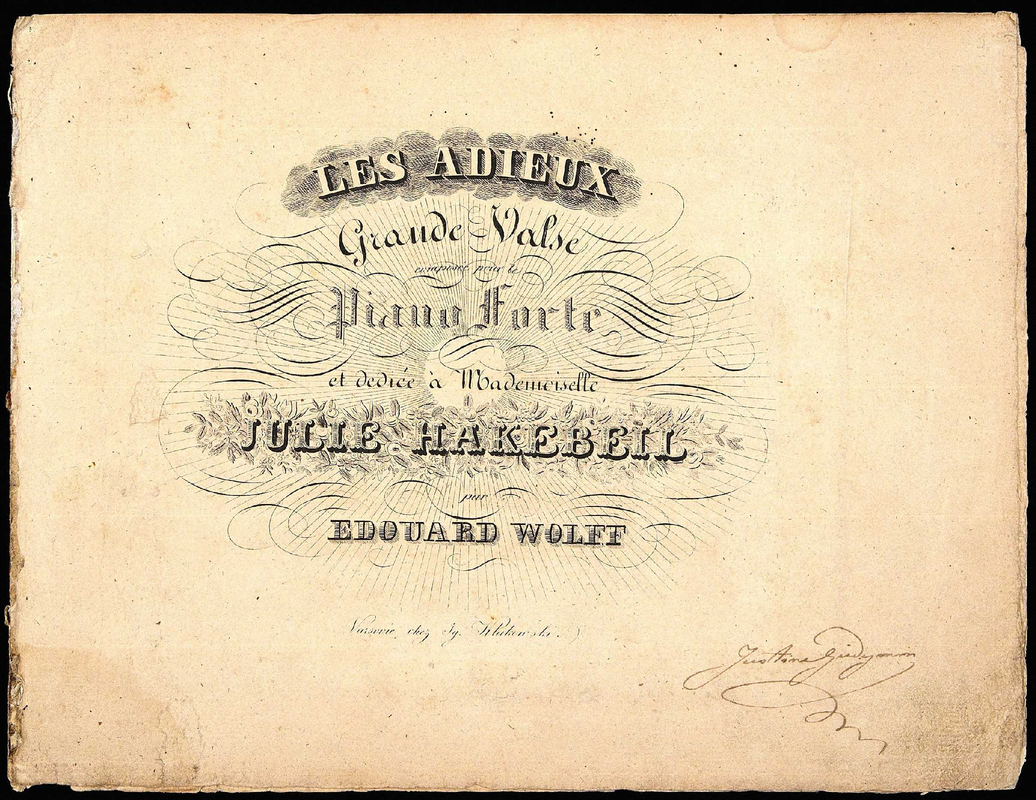 LES ADIEUX
Grande Valse
composée pour le
Piano Forte
et dediée à Mademoiselle
JULIE HAKEBEIL
par
EDOUARD WOLFF
Varsovie chez Ig. Klukowski.
Justine